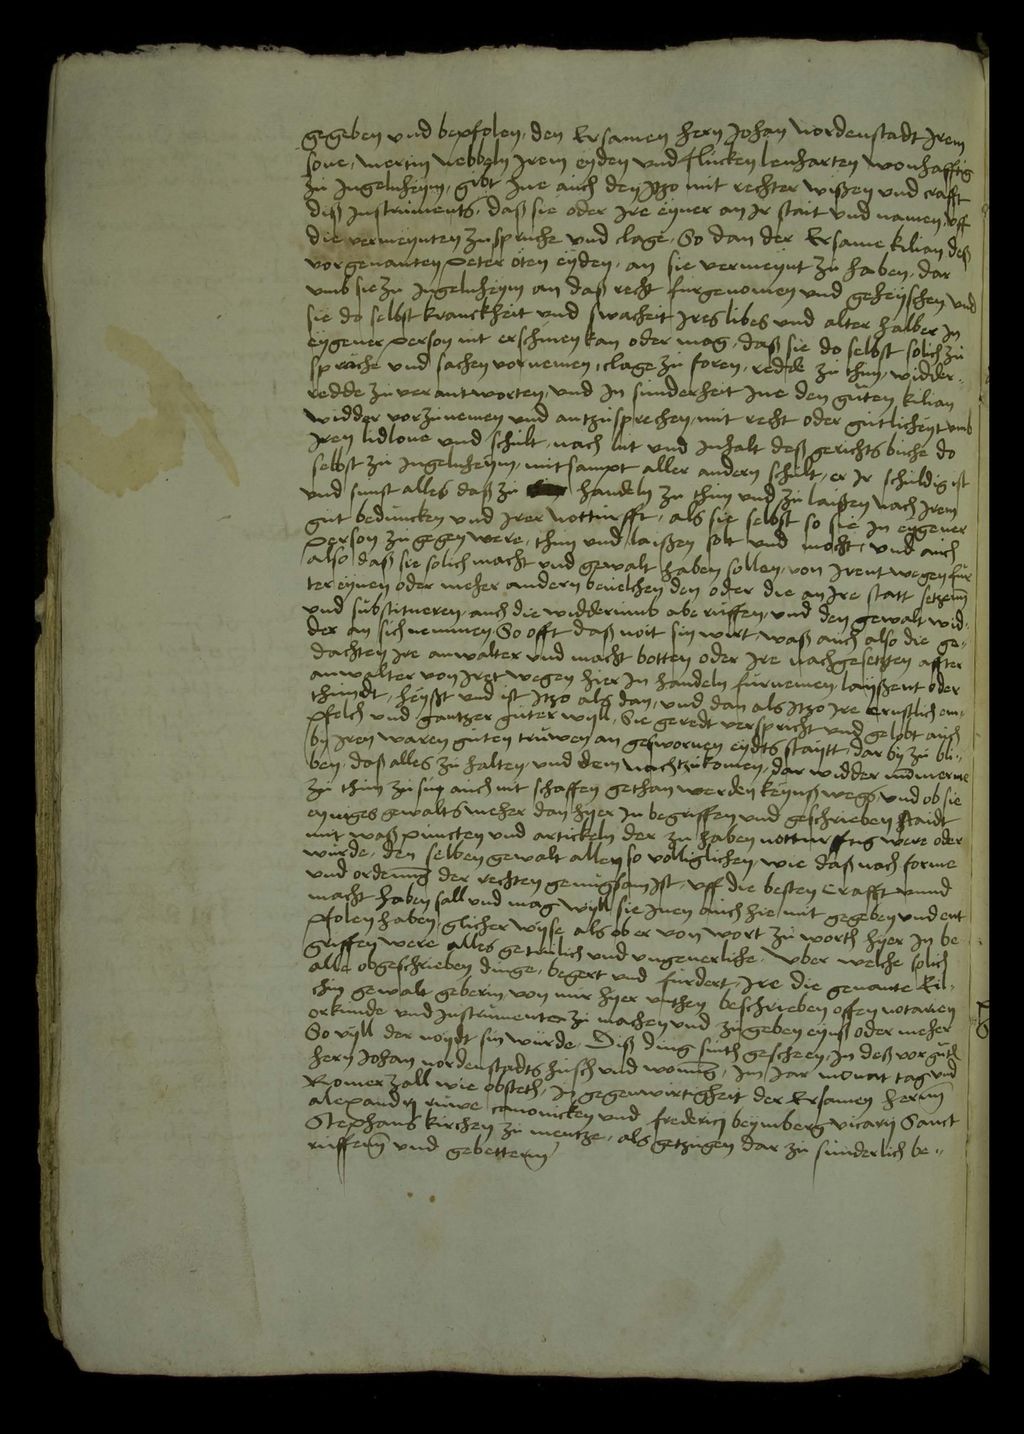 gegeben und bepfolen, den Ersamen hern Johan Nordenstadt Jrem
sone, Mertin Nebbeln Jrem eyden und Flucken lenharten wonhafftig
zu Jngelnheym, gibt Jne auch den Jtzo mit rechter wißen und crafft
diß Jnstruments, daß sie oder Jre eyner an Jr stait und namen, uff
die vermeynten zuspruche und clage, So dan der Ersame kilian deß
vorgenanten Peter öten eyden, an sie vermeynt zu haben, dar
umb sie zu Jngelnheym an daß recht furgenomen und geheyschen und
sie do selbst kranckheit und swacheit Jres libes und alter halber Jn
eygener person nit erschinen kan oder mag, daß sie do selbst solich zu
spruche und sachen vornemen, clage zu foren, redde zu thun, widder-
redde zu verantworten, und Jn sunderheit Jne den guten kilian
widder vorzunemen und antzusprechen, mit recht oder gutlicheyt umb
Jren lidlone und schult, nach lut und Jnhalt deß gerichts buche do
selbst zu Jngelnheym, mit sampt aller andern schult, er Jr schuldig ist
und sunst alles daß zu handeln zu thun und zu laißen nach Jrem
gut beduncken und Jrer notturfft, als sie selbst so sie Jn eygener
person zu gegen were, thun und laißen solt und mocht, und auch
also daß sie solich macht und gewalt haben sollen, von Jrent wegen fur
ter eynen oder meher andern beuelchen den oder die an Jre statt setzenn
und substitueren, auch die widderumb abe ruffen, und den gewalt wid-
der an sich nemmen So offt daß noit sin wirt, waß auch also die ge-
dachten Jre anwalter und macht botten oder Jre nachgesetzten affter
anwalter von Jret wegen hier Jn handeln furnemen, layßent oder
thundt, heyßt und ist Jtzo als dan, und dan als Jtzo Jre ernstlich em-
pfelch und gantzer guter wyll, Sie geredt verspricht und gelobt auch
by Jren waren guten truwen an geswornen eydts staytt, dar by zu bli-
ben, daß alles zu halten, und dem nachtzukomen, dar widder nummerme
zu thun zu sin auch nit schaffen gethan werden keynß wegs, und ob sie
eyniges gewalts meher dan hyer Jn begriffen und geschrieben staidt
mit waß puncten und artickeln der zu haben notturfftig were oder
wurde, den selben gewalt allen so volliglichen, wie daß nach forme
und ordenung der rechten genugsam Jst, uff die besten crafft unnd
macht haben sall und mag wyll sie Jnen auch hie mit gegeben und ent
pfolen haben, glicher wyse als ob er von wort zu worth hyer Jn be
griffen were alles getrulich und ungeuerliche, Uber welche solich
alle obgeschrieben dinge, begert und furdert, Jre die genante ki-
chin gewalt geberin von mir hyer unthen beschrieben offen notarien
orkunde und Jnstrumente zu machen und zu geben eynß oder meher
So vyll der noydt sin wurde, Diß ding sinth gescheen, Jn deß vorgnten
hern Johan nordenstadts husch und wonung, Jm Jar monat tag und
Romer zall wie obsteth, Jn gegenwirtigheit der Ersamen hernn
alexandrj ruwe canonicken und frederich beymberg vicarij Sanct
Stephans kirchen zu mentze, als getzugen dar zu sunderlich be-
ruffenn und gebettenn